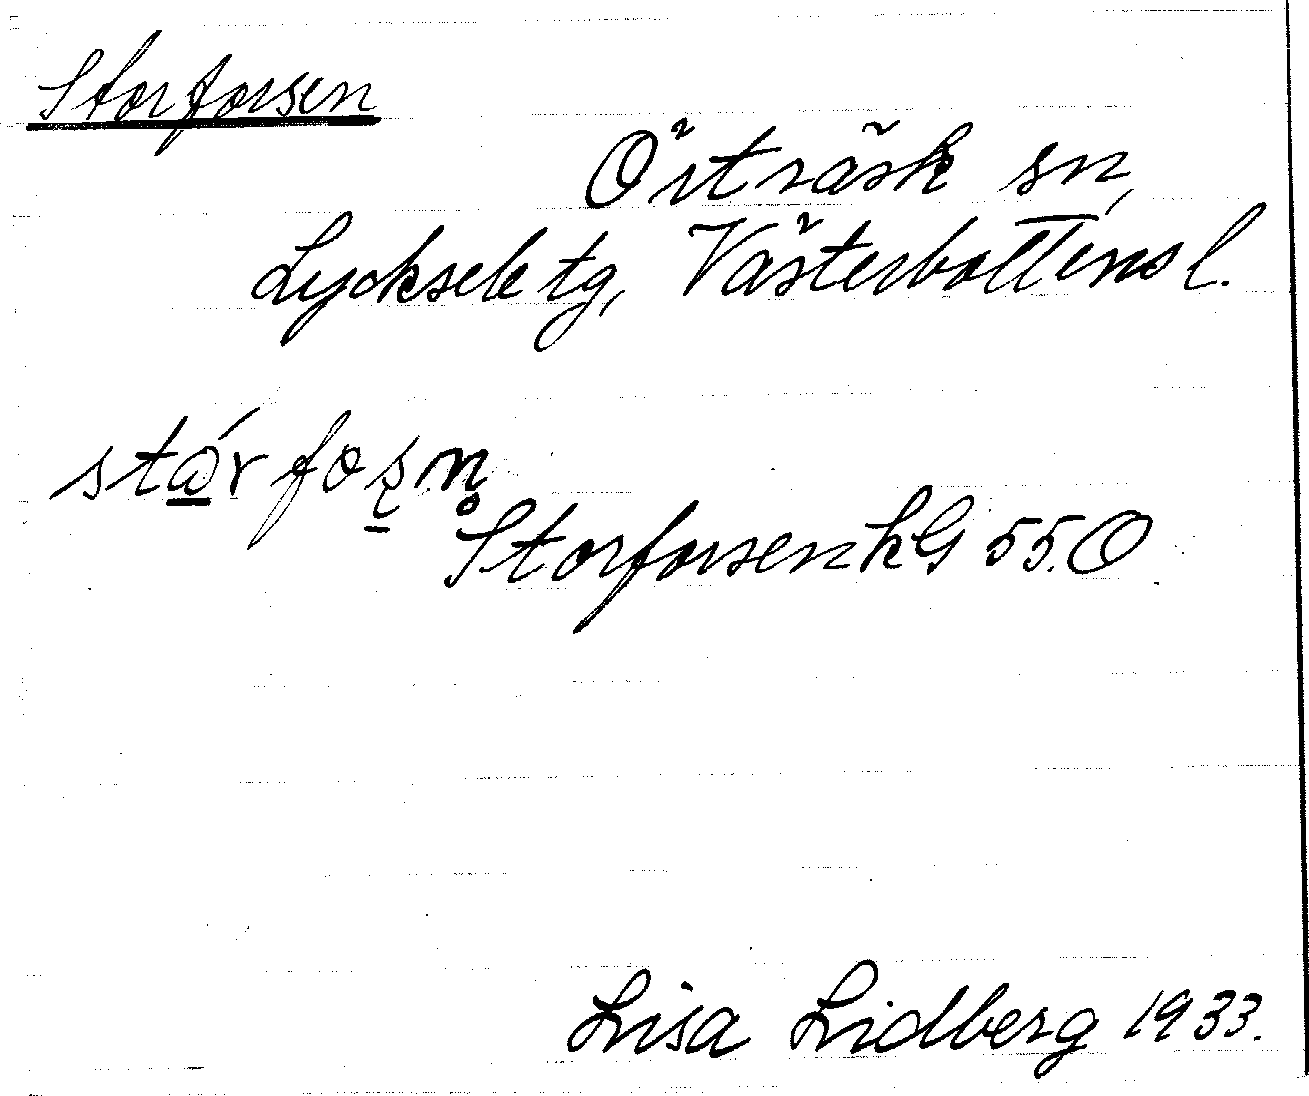 Storforsen
Örträsk sn,
Lycksele tg, Västerbottens l.
stårfoʂn̥
Storforsen kG 55.O
Lisa Lidberg 1933.